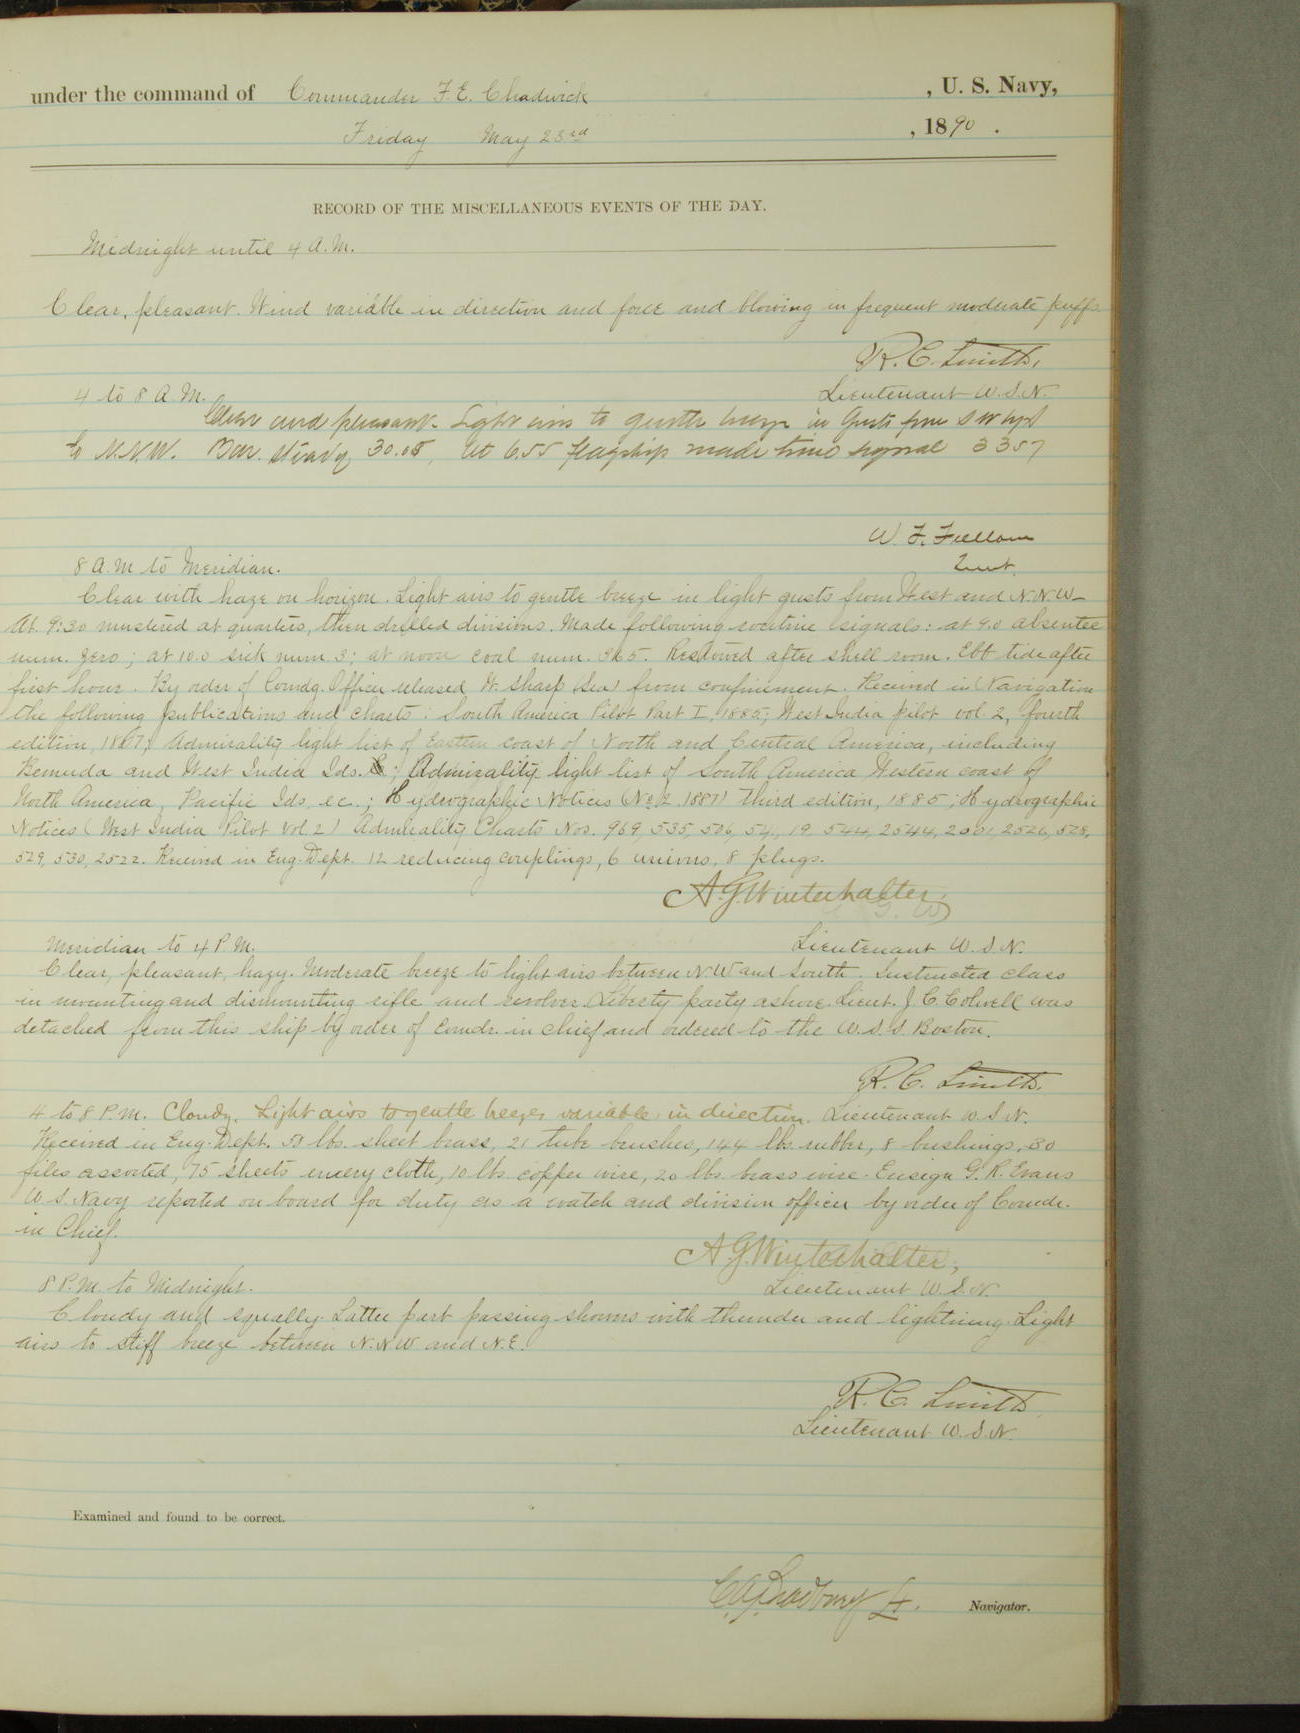 under the command of Commander F. E. Chadwick , U. S. Navy,
Friday May 23rd , 1890 .
RECORD OF THE MISCELLANEOUS EVENTS OF THE DAY.
Midnight until 4 A.M.
Clear, pleasant. Wind variable in direction and force and blowing in frequent moderate puffs.
R. C. Smith,
4 to 8 A.M. Lieutenant U.S.N.
Clear and pleasant. Light airs to gentle breeze in gusts from S W
to N.N.W. Bar. steady 30.05, At 6.55 flagship made time signal 3357
W. F. Fullam
8 A.M to Meridian. Lieut.
Clear with haze on horizon. Light airs to gentle breeze in light gusts from West and N.N.W.
At 9:30 mustered at quarters, then drilled divisions. Made following routine signals: at 9.0 absentee
num. zero; at 10.0 sick num 3; at noon coal num. 365. Restowed after shell room. Ebb tide after
first hour. By order of Comdg. Officer released W. Sharp (Sea) from confinement. Received in Navigation
the following publications and charts: South America Pilot Part I, 1885; West India pilot vol. 2, fourth
edition, 1887; Admirality light list of Eastern coast of North and Central America, including
Bermuda and West India Ids.; Admirality light list of South America Western coast of
North America, Pacific Ids, ec.; Hydrographic Notices (No. 2. 1887) third edition, 1885; Hydrographic
Notices (West India Pilot Vol 2) Admirality Charts Nos. 969, 535, 506, 54, 19, 544, 2544, 2001, 2526, 528,
529, 530, 2522. Received in Eng. Dept. 12 reducing couplings, 6 unions, 8 plugs.
A. G. Winterhalter,
Meridian to 4 P.M. Lieutenant U.S.N.
Clear, pleasant, hazy. Moderate breeze to light airs between N.W and South. Instructed class
in mounting and dismounting rifle and revolver. Liberty party ashore. Lieut. J. C. Colwell was
detached from this ship by order of Comdr. in chief and ordered to the U.S.S. Boston.
R. C. Smith.
4 to 8 P.M. Cloudy. Light airs to gentle breeze, variable in direction. Lieutenant U.S.N.
Received in Eng. Dept. 53 lbs. sheet brass, 21 tube brushes, 144 lbs. rubber, 8 bushings, 30
files assorted, 75 sheets emery cloth, 10 lbs. copper wire, 20 lbs. brass wire. Ensign G. R. Evans
U.S. Navy reported on board for duty as a watch and division officer by order of Comdr.
in Chief.
A. G. Winterhalter,
8 P.M. to Midnight. Lieutenant U.S.N.
Cloudy and squally. Latter part passing showers with thunder and lightning. Light
airs to stiff breeze between N.N.W and N.E.
R. C. Smith,
Lieutenant U.S.N.
Examined and found to be correct.
Navigator.